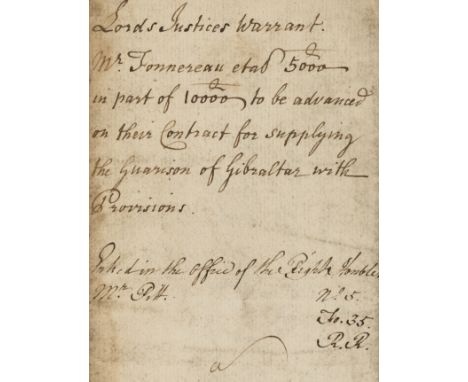 Lords Justices Warrant.
Mr. Fonnereau et al 5000
in part of 10000 to be advanced
on their Contract for supplying
the Guarison of Gibraltar with
Provisions.
in the Office of the Right Honble
Mr. Pitt.
No. 5.
Fo. 35.
R.R.